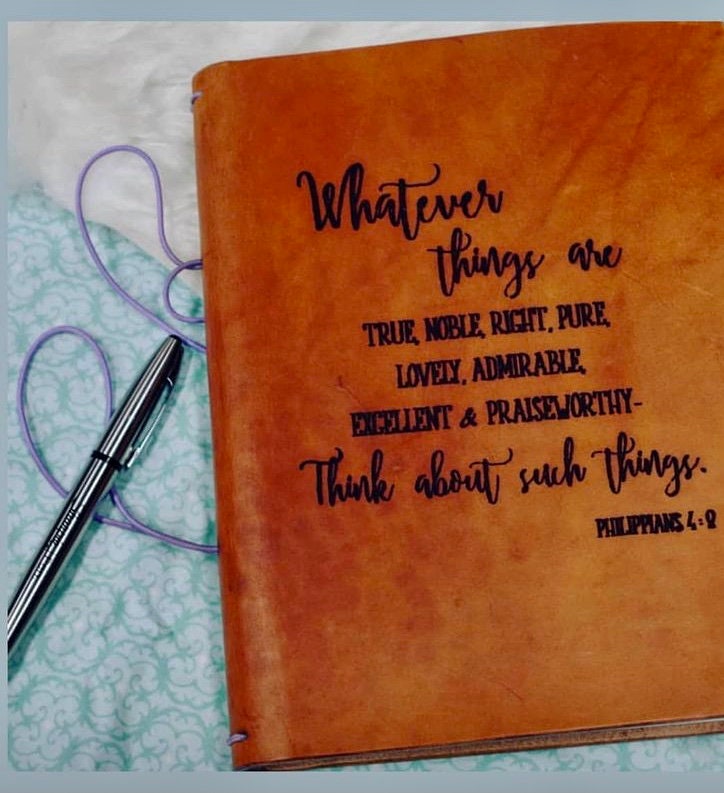 Whatever
things are
TRUE, NOBLE, RIGHT, PURE,
LOVELY, ADMIRABLE,
EXCELLENT & PRAISEWORTHY-
Think about such things.
PHILIPPIANS 4:8